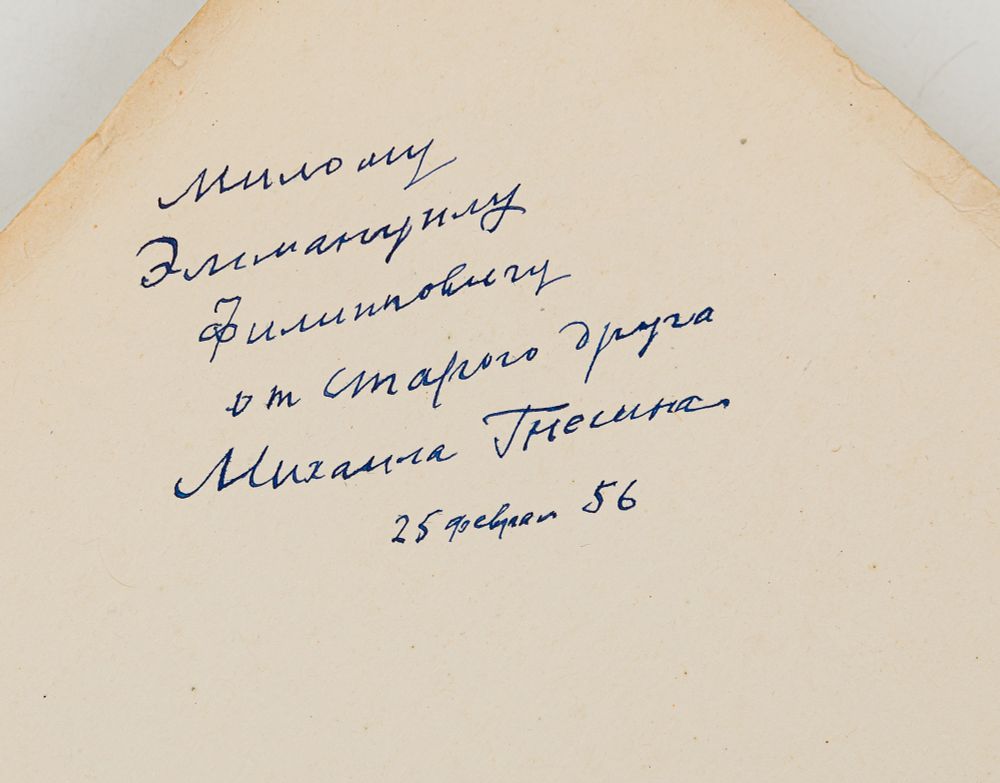 Милому
Эммануилу
Филипповичу
от старого друга
Михаила Гнесина
25 февраля 56